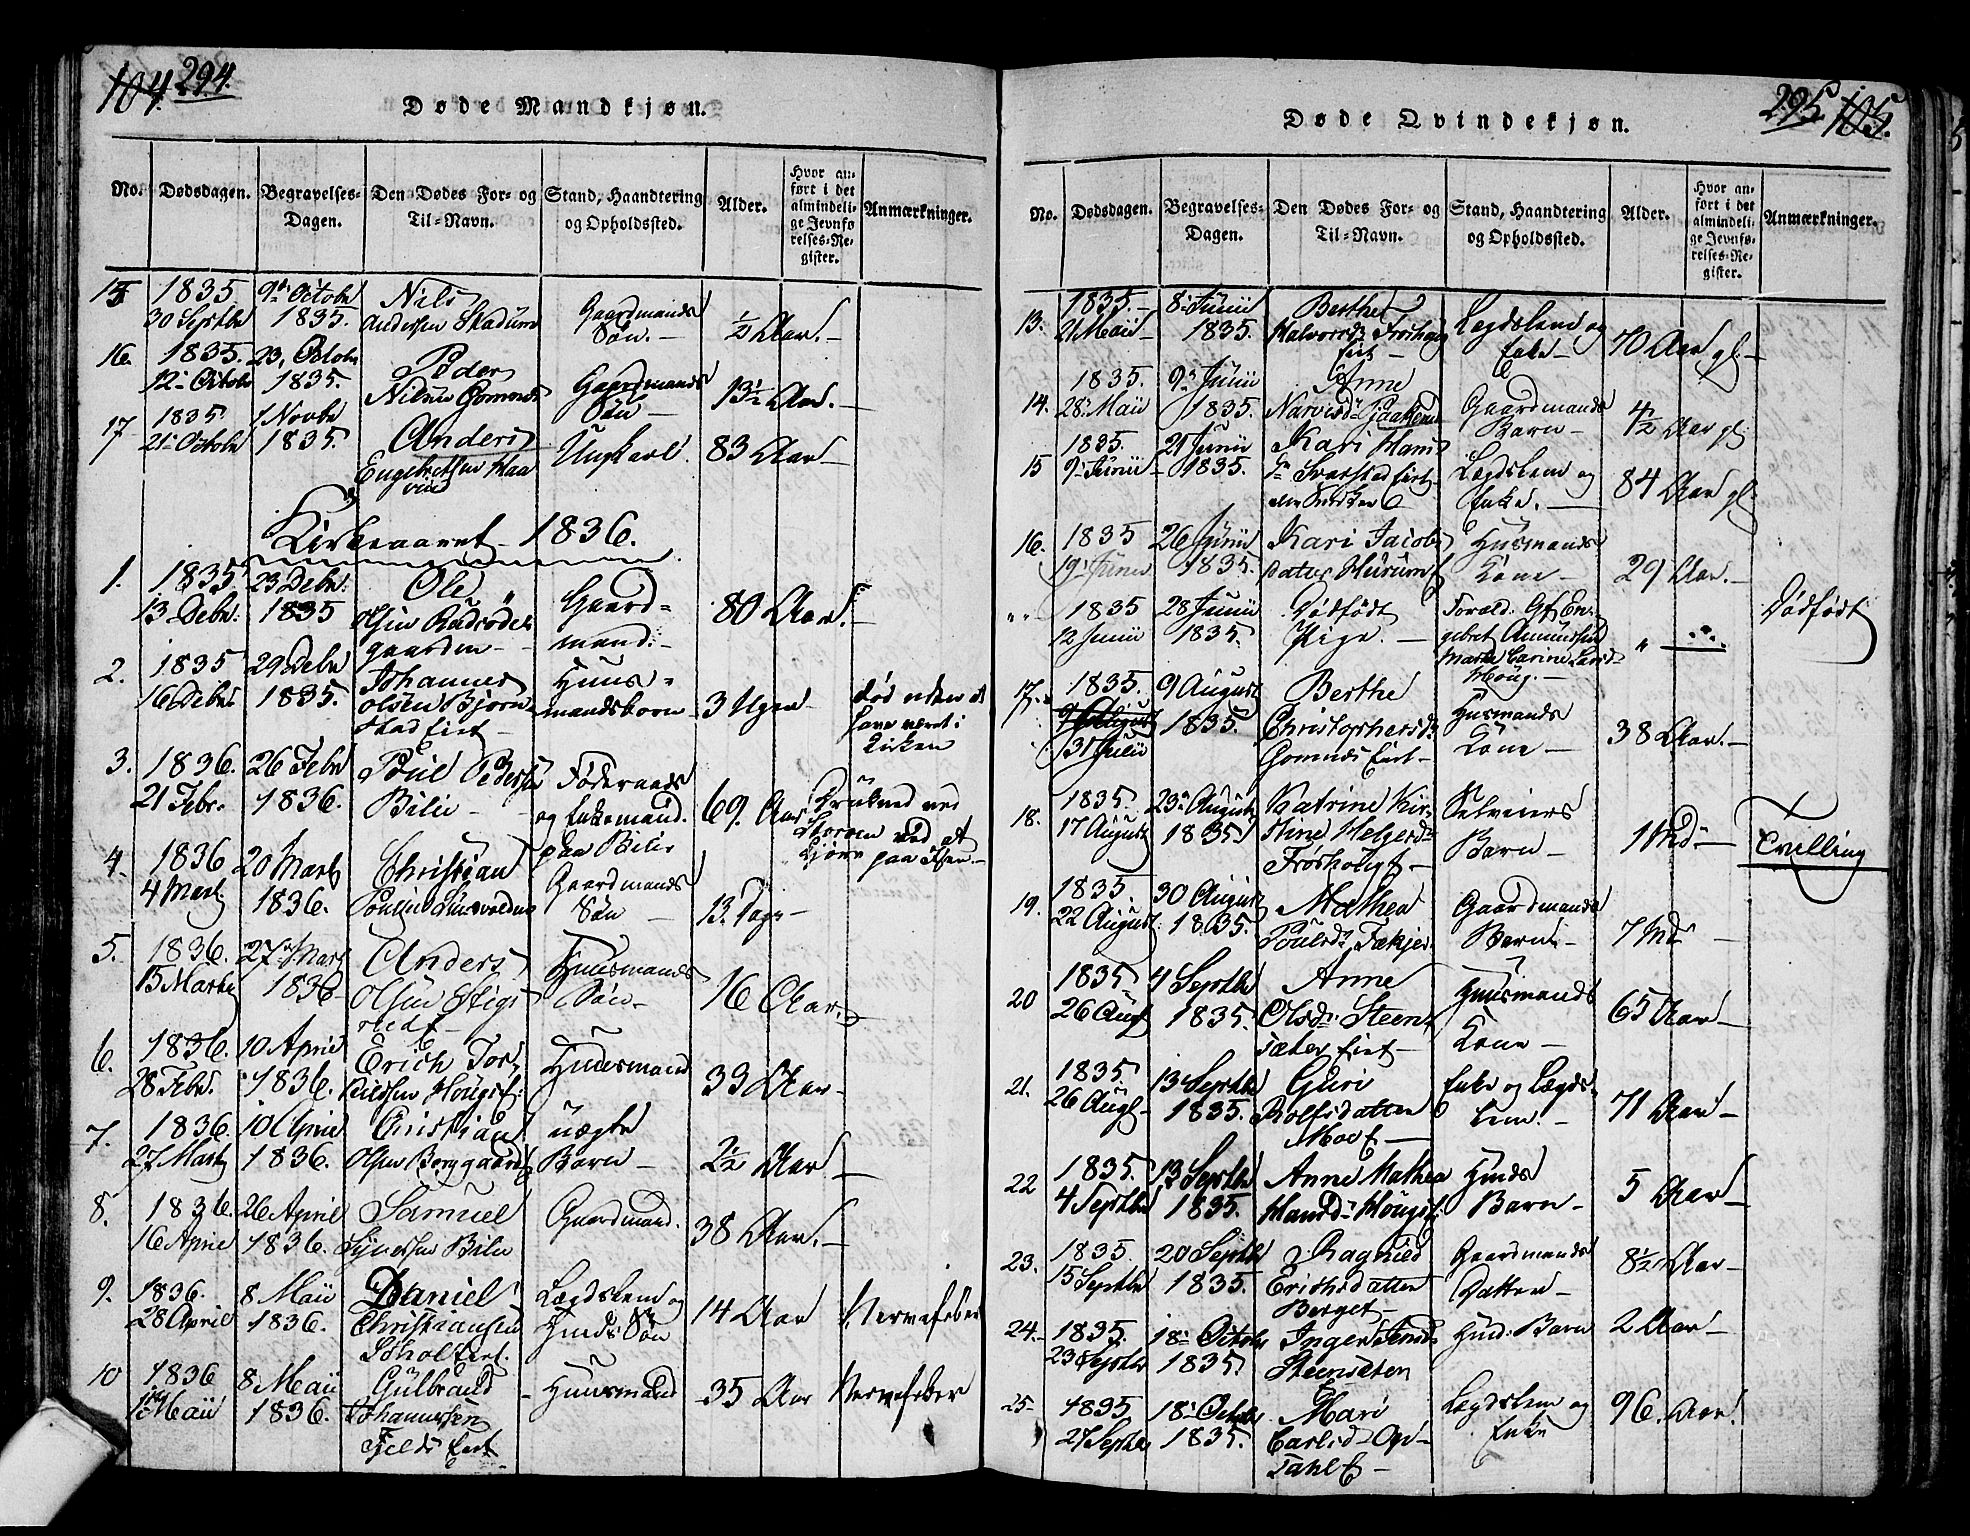 104. 294.
Døde Mandkjøn.
No. Dødsdagen. Begravelses-Dagen. Den Dødes For- og Til-Navn. Stand, Haandtering og Opholdssted. Alder. Hvor anført i det almindelige Jevnførelses-Register. Anmærkninger.
15 1835. 9de Octobr Nils Gaardmands
30 Septbr 1835. Andersen Søn. ½ Aar.
16. 1835. 23, Octobr Peder Gaardmands
12 Octobr 1835. Nilsen Søn 13½ Aar.
17 1835. 1 Novbr Anders Ungkarl 83 Aar
21 Octobr 1835. Engebretsen
Kirkeaaret 1836.
1. 1835 23 Debr. Ole Gaard-
13 Debr. 1835 Olsen 80 Aar.
gaarden mand.
2. 1835 29 Debr Johannes Huus-
16 Debr 1835. Olsen Bjørn- mandsbarn 3 Uger død uden at
stad eiet have været i
Kirken
3. 1836. 26 Febr Poul Peders Føderaads
21 Febr. 1836. Bilie og Enkemand. 69. Aar Druknet ved
paa Bilie Storven ved at
kjøre paa Isen.
4. 1836 20 Marts Christian Gaardmands
4 Marts 1836. Poulsen Søn 13. Dage
5. 1836. 27 Marts Anders Huusmands
15 Marts 1836 Olsen Stigs- Søn 16 Aar.
6. 1836. 10 April Erich Tor- Huusmand
28 Febr. 1836. kildsen Hougsf: 33 Aar
7. 1836. 10 April Christian uægte
27 Marts 1836. Olsen Berggaard Barn 2½ Aar.
8. 1836. 26 April Samuel Gaardmand.
16 April 1836. Synessen Bilie 38 Aar.
9. 1836. 8 Maii Daniel Lægdslem og
28 April 1836. Christiansen Huuds Søn 14 Aar Nervefeber
10 1836 8 Maii Gulbrand Huusmand 35 Aar Nervefeber
1 Maii 1836. Johannessen
Fjelds Eiet
295. 105.
Døde Qvindekjøn.
No. Dødsdagen. Begravelses-Dagen. Den Dødes For- og Til-Navn. Stand, Haandtering og Opholdssted. Alder. Hvor anført i det almindelige Jevnførelses-Register. Anmærkninger.
13. 1835. 8 Junii Berthe Lægdslem og
21 Maii 1835. Halvorsdr Frøshaug Enke 70 Aar gl:
eiet
14. 1835. 9 Junii Anne Gaardmands
28 Maii 1835. Narvesdr Barn 4½ Aar gl:
15 1835. 21 Junii Kari Hans Lægdslem og
9 Junii 1835. dr Enke. 84 Aar gl:
16. 1835 26 Junii Kari Jacobs Husmands
19 Junii 1835. datter Kone 29 Aar.
" " 1835 28 Junii Dødfødt Foræld: Gf. En-
12 Junii 1835. Pige. gebret Amundsen " Dødfødt
Marthe Carine Larsd
Houg.
17. 1835. 9 August Berthe Husmands
9 August 1835. Christophersdr Kone 38 Aar.
31 Julii Gomnes Eiet
18. 1835. 23 August Katrine Kir- Selveiers
17 August 1835 stine Helgesdr Barn 1 Md Tvilling
Frøshougf
19. 1835. 30 August Mathea Gaardmands
22 August 1835. Poulsdr Barn 7 Md
20 1835. 4 Septbr Anne Huusmands
26 Aug 1835. Olsdr Steen- Kone 65 Aar
sæter Eiet
21. 1835. 13 Septbr Guri Enke og Lægds-
26 Aug 1835. Rolfsdatter Lem. 71 Aar
Moe E
22 1835. 13 Septbr Anne Mathea Huuds
4 Septbr 1835. Hansdr Hougsf. Barn 5 Aar
23. 1835. 20 Septbr Ragnild Gaardmands
15 Septbr 1835. Erichsdatter Datter 8½ Aar
Berget
24. 1835. 18 Octobr Inger Huud: Barn 2 Aar
23 Septbr 1835. Steensæter
25 1835 18 Octobr Mari Lægdslem og
27 Septbr 1835. Carlsdr Op- Enke 96. Aar.
sahl E